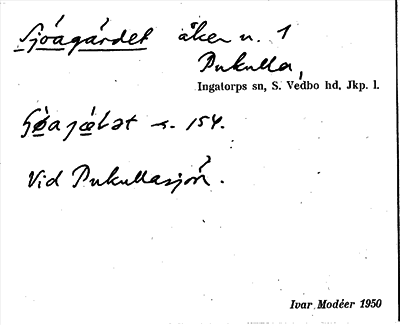 Sjöagärdet åker n. 1
Pukulla,
Ingatorps sn, S. Vedbo hd, Jkp. l.
s. 154.
Vid Pukullasjön.
Ivar Modéer 1950